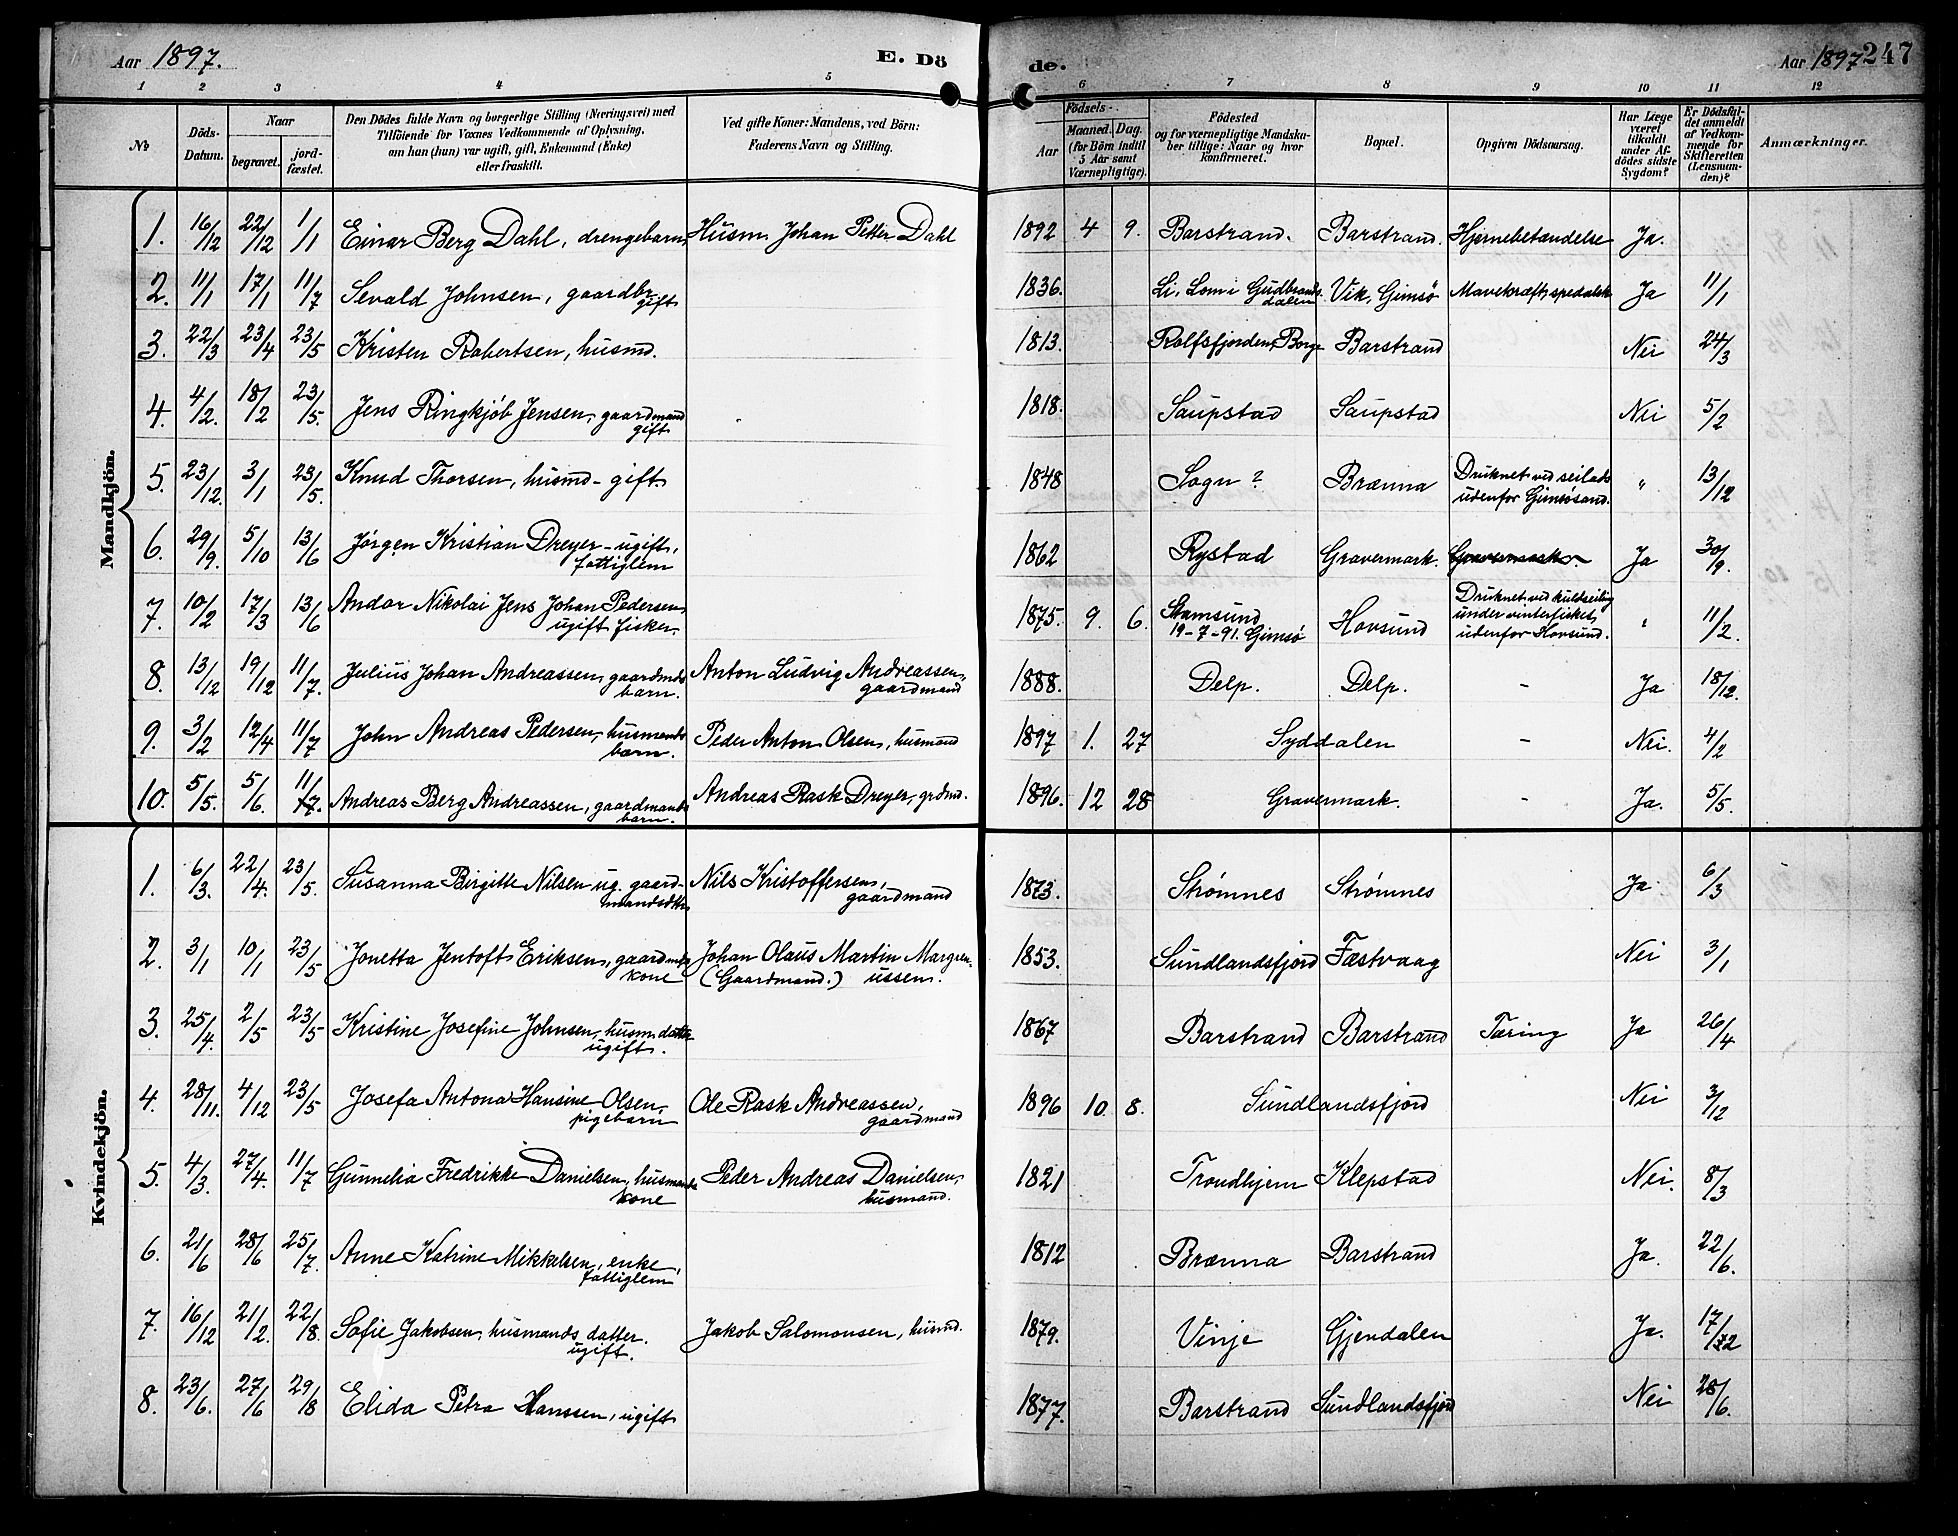 Aar 1897. E. Dö de. Aar 1897 247
1 2 3 4 5 6 7 8 9 10 11 12
No Döds-Datum. Naar begravet. jordfæstet. Den Dödes fulde Navn og borgerlige Stilling (Næringsvei) med Tilföiende for Voxnes Vedkommende af Oplysning, om han (hun) var ugift, gift, Enkemand (Enke) eller fraskilt. Ved gifte Koner: Mandens, ved Börn: Faderens Navn og Stilling. Födsels- Aar Maaned. Dag. (for Börn indtil 5 Aar samt Værnepligtige). Födested og for værnepligtige Mandskaber tillige: Naar og hvor konfirmeret. Bopæl. Opgiven Dödsaarsag. Har Læge været tilkaldt under Afdödes sidste Sygdom? Er Dödsfaldet anmeldt af Vedkommende for Skifteretten (Lensmanden)? Anmærkninger.
Mandkjön.
1. 16/12 22/12 1/1 Einar Berg Dahl, drengebarn Husm. Johan Petter Dahl 1892 4 9. Barstrand. Barstrand. Hjernebetændelse Ja.
2. 11/1 17/1 11/7 Sevald Johnsen, gaardbr. gift 1836. Li, Lom i Gudbrandsdalen Vik, Gimsö Mavekræft, spedalsk Ja 11/1
3. 22/3 23/4 23/5 Kristen Robertsen, husmd. 1813. Rolfsfjorden, Borge Barstrand Nei 24/3
4. 4/2. 18/2 23/5. Jens Ringkjöb Jensen, gaardmand gift 1818. Saupstad Saupstad Nei 5/2
5. 23/12. 3/1 23/5. Knud Thorsen, husmd - gift. 1848 Sogn? Brænna Druknet ved seilads udenfor Gimsösand. " 13/12
6. 29/9. 5/10 13/6 Jörgen Kristian Dreyer - ugift, fattiglem 1862 Rystad Gravermark. Gravermark. Ja 30/9.
7. 10/2 17/3 13/6 Andor Nikolai Jens Johan Pedersen ugift fisker. 1875. 9. 6. Stamsund 19-7-91. Gimsö Hovsund Druknet ved kuldseiling under vinterfisket udenfor Hovsund. " 11/2.
8. 13/12 19/12 11/7. Julius Johan Andreassen, gaardmds barn. Anton Ludvig Andreassen, gaardmand 1888. Delp. Delp. - Ja 18/12.
9. 3/2 12/4 11/7 John Andreas Pedersen, husmands barn. Peder Anton Olsen, husmand 1897 1. 27 Syddalen - Nei. 4/2
10. 5/5. 5/6. 11/7. Andreas Berg Andreassen, gaardmands barn. Andreas Rask Dreyer, grdmd. 1896. 12 28 Gravermark. - Ja. 5/5.
Kvindekjön.
1. 6/3. 22/4. 23/5. Susanna Birgitte Nilsen ug. gaardmandsdtr Nils Kristoffersen, gaardmand 1873. Strømnes Strømnes Ja 6/3
2. 3/1 10/1 23/5 Jonetta Jentoft Eriksen, gaardmds kone Johan Olaus Martin Margrenussen. (Gaardmand.) 1853. Sundlandsfjord Fæstvaag Nei 3/1
3. 25/4. 2/5 23/5 Kristine Josefine Johnsen, husm. datter ugift. 1867 Barstrand Barstrand Tæring Ja 26/4
4. 28/11. 4/12 23/5 Josefa Antona Hansine Olsen, pigebarn Ole Rask Andreassen, gaardmand 1896 10. 8. Sundlandsfjord Nei 3/12
5. 4/3. 27/4. 11/7 Gunnelia Fredrikke Danielsen, husmands kone Peder Andreas Danielsen, husmand. 1821 Trondhjem Klepstad Nei. 8/3
6. 21/6 28/6 25/7. Anne Katrine Mikkelsen, enke, fattiglem 1812 Brænna Barstrand Ja. 22/6.
7. 16/12 21/2. 22/8. Sofie Jakobsen, husmands datter. ugift. Jakob Salomonsen, husmd. 1879. Vinje Gjendalen Ja. 17/12
8. 23/6. 27/6 29/8 Elida Petra Hanssen, ugift 1877. Barstrand Sundlandsfjord Nei 28/6.